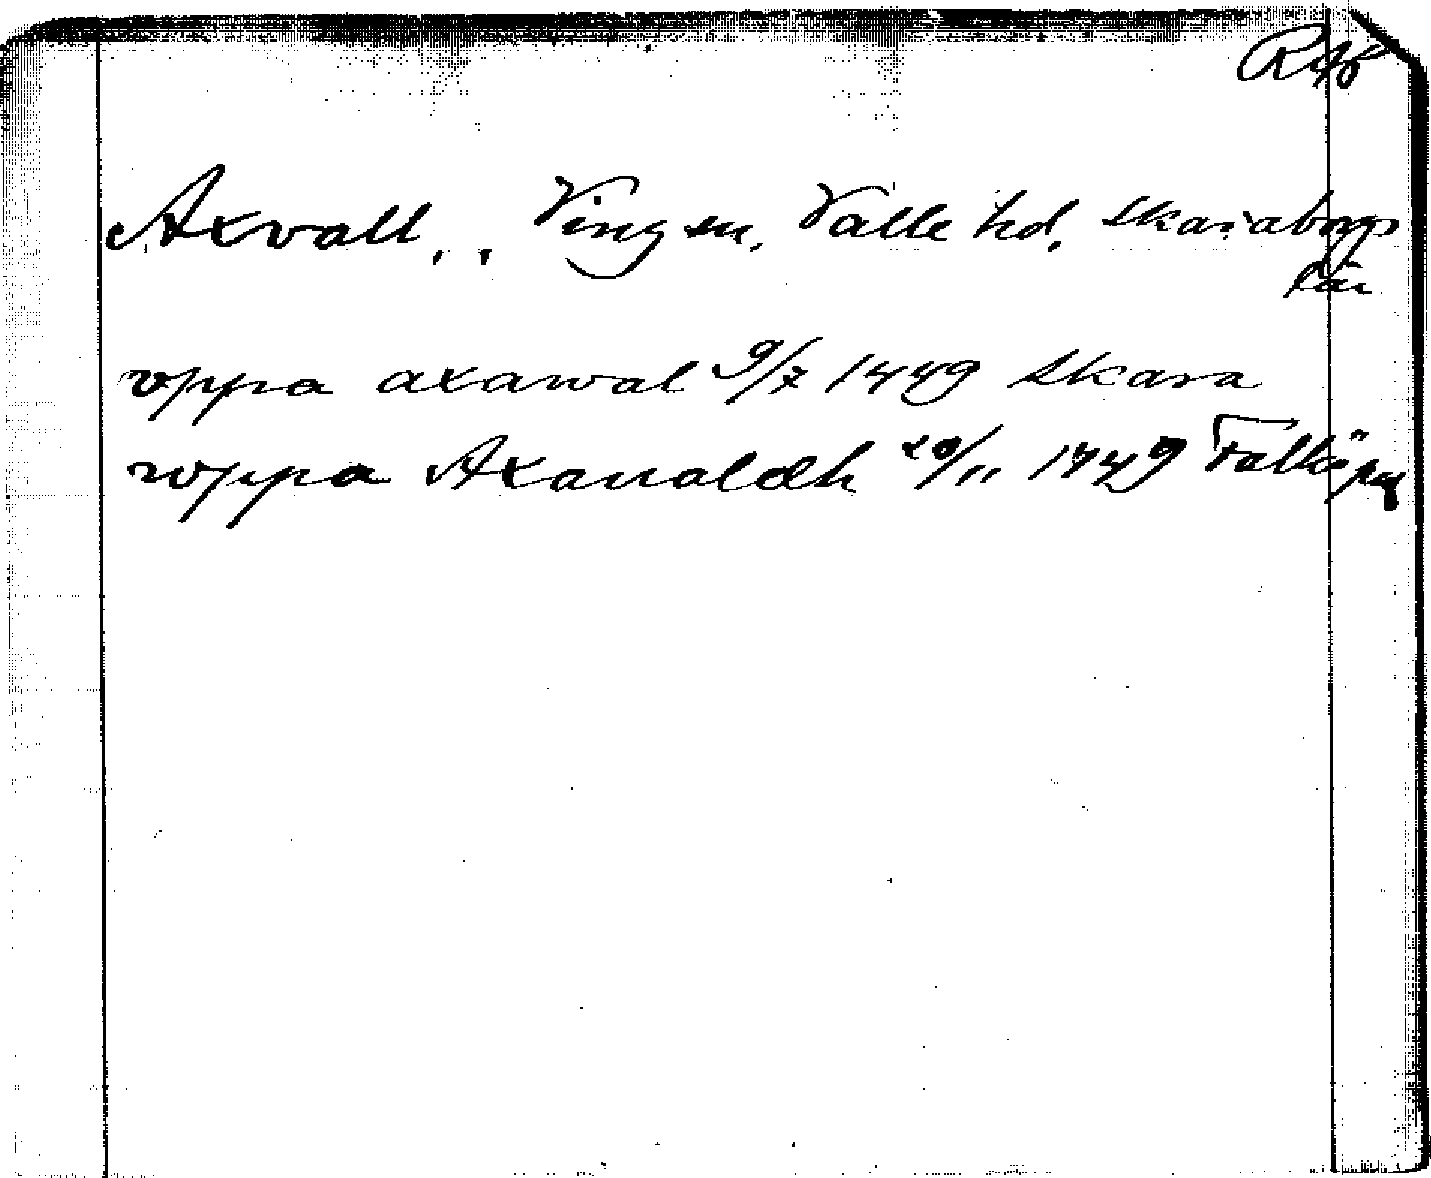 RAp
Axvall, , Ving sn, Valle hd, Skaraborgs
län
vppa axawal 9/7 1449 Skara
wppa Axaualdh 20/11 1449 Falköping